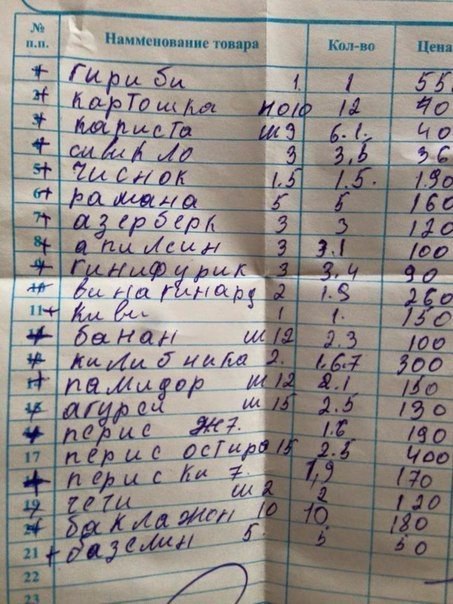 № п.п. Наименование товара Кол-во Цена
1 гириби 1. 1 55
2 картошка 1010 12 40
3 кариста ш9 6.1. 40
4 сивикло 3 3,5 36
5 чиснок 1.5 1.5. 190
6 рамана 5 5 160
7 азерберк 3 3 120
8 апилсин 3 3.1 100
9 гинифурик 3 3,4 90
10 винагинард 2 1.9 260
11 киви 1 1. 150
банан ш12 2.3 100
килибника 2. 1.6.7 300
памидор ш12 2.1 150
агурси ш15 2.5 130
перис ж7. 1.6 190
17 перис остиро 15 2.5 400
периски 7. 1,9 170
19 чети ш2 2 120
баклажен 10 10 180
21 базелин 5. 5 50
22
23